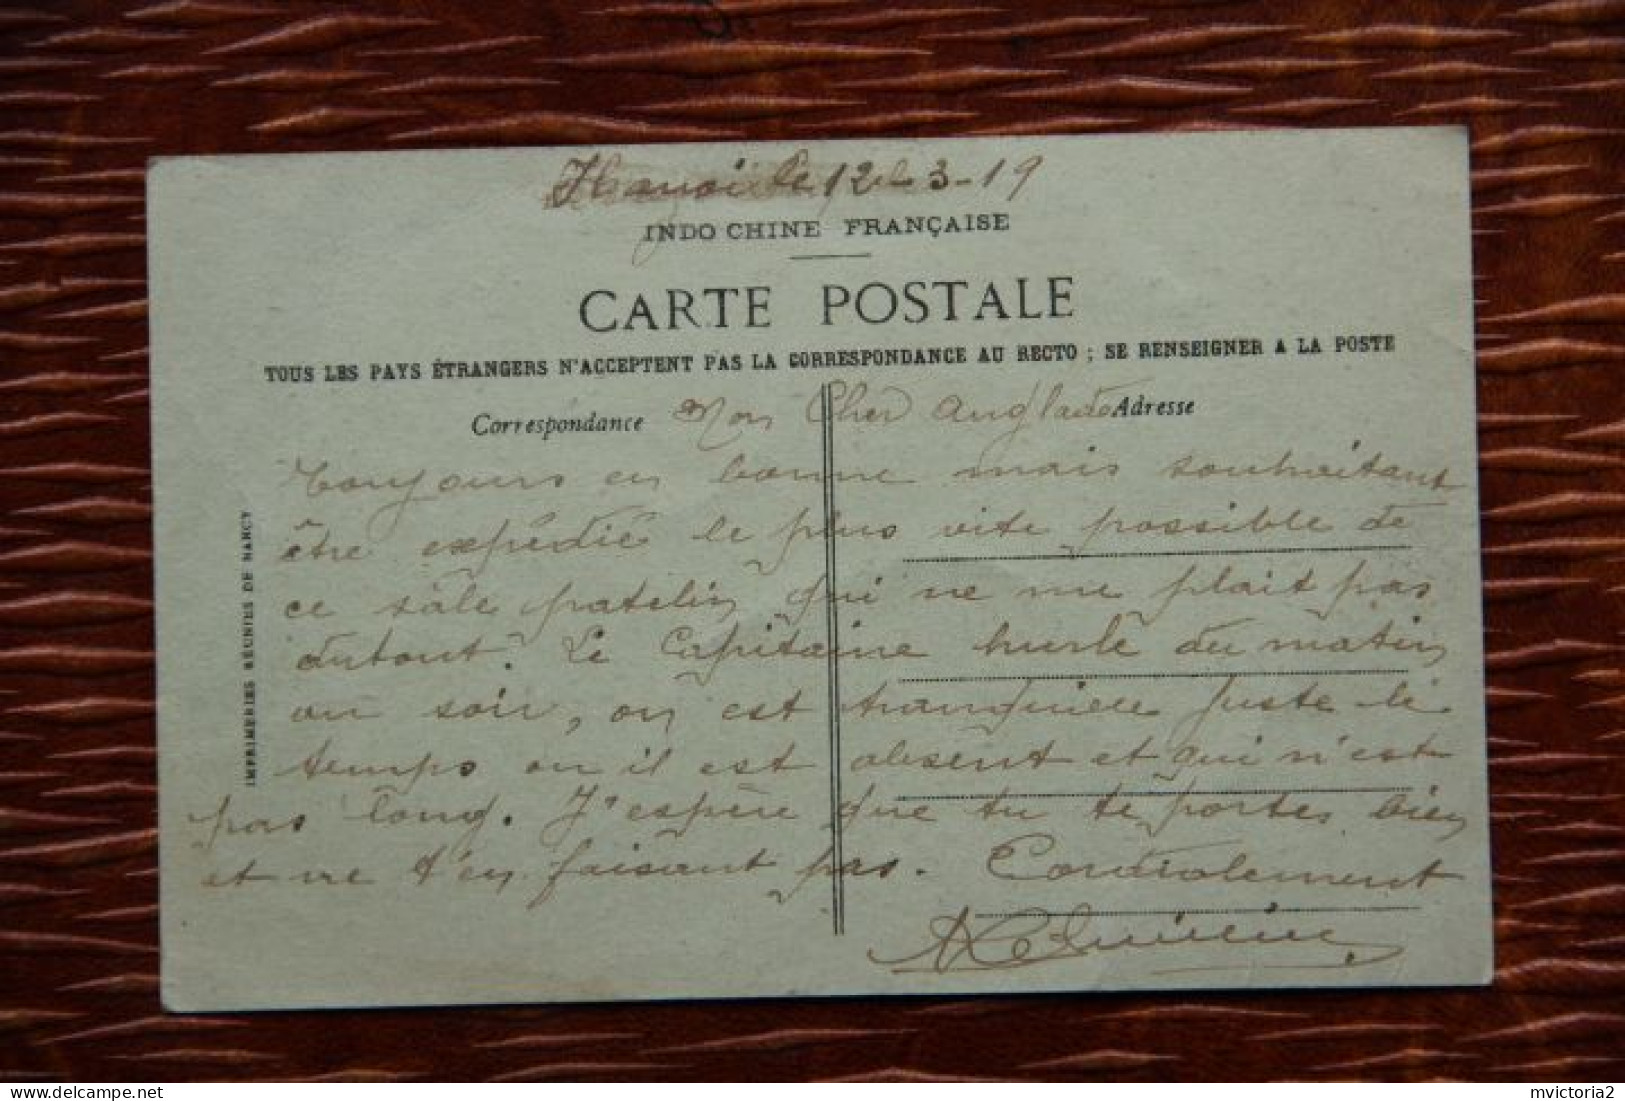 Hanoi le 12-3-19
INDO CHINE FRANÇAISE
CARTE POSTALE
TOUS LES PAYS ÉTRANGERS N'ACCEPTENT PAS LA CORRESPONDANCE AU RECTO ; SE RENSEIGNER A LA POSTE
Correspondance
Adresse
Mon Cher Anglade
Toujours en bonne mais souhaitant
être expédié le plus vite possible de
ce sâle patelin qui ne me plait pas
dutout. Le Capitaine hurle du matin
au soir, on est tranquille juste le
temps ou il est absent et qui n'est
pas long. J'espère que tu te portes bien
et ne t'en faisant pas. Cordialement
IMPRIMERIES RÉUNIES DE NANCY
mvictoria2